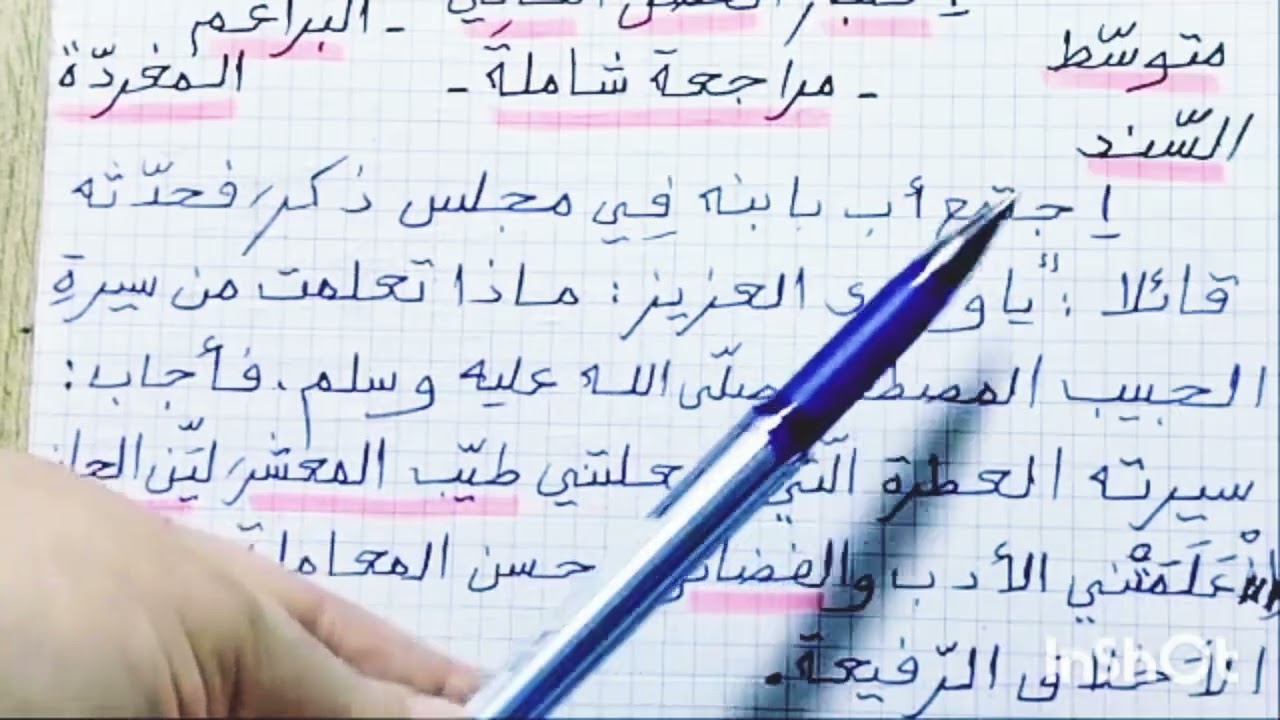 البراعم
متوسّط - مراجعة شاملة - المغردّة
السّند
اِجتمع أب بابنه فِي مجلس ذكر، فحدّثه
قائلا: "يا و ى العزيز: ماذا تعلمت من سيرةِ
الحبيب صلّى الله عليه وسلم. فأجاب:
سيرته العطرة الّتي طيّب المعشر، ليّن
عَلَمَتْني الأدب حسن
الأخلاق الرّفيعة.
InShOt